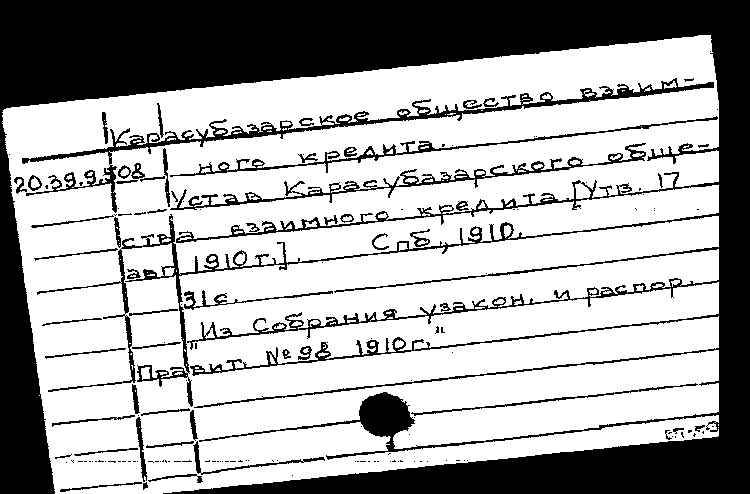 Карасубазарское общество взаим-
ного кредита.
20.39.9.508
Устав Карасубазарского обще-
ства взаимного кредита. [Утв. 17
авг. 1910 г.]. Спб., 1910.
31 с.
"Из Собрания узакон. и распор.
Правит. № 98 1910 г."